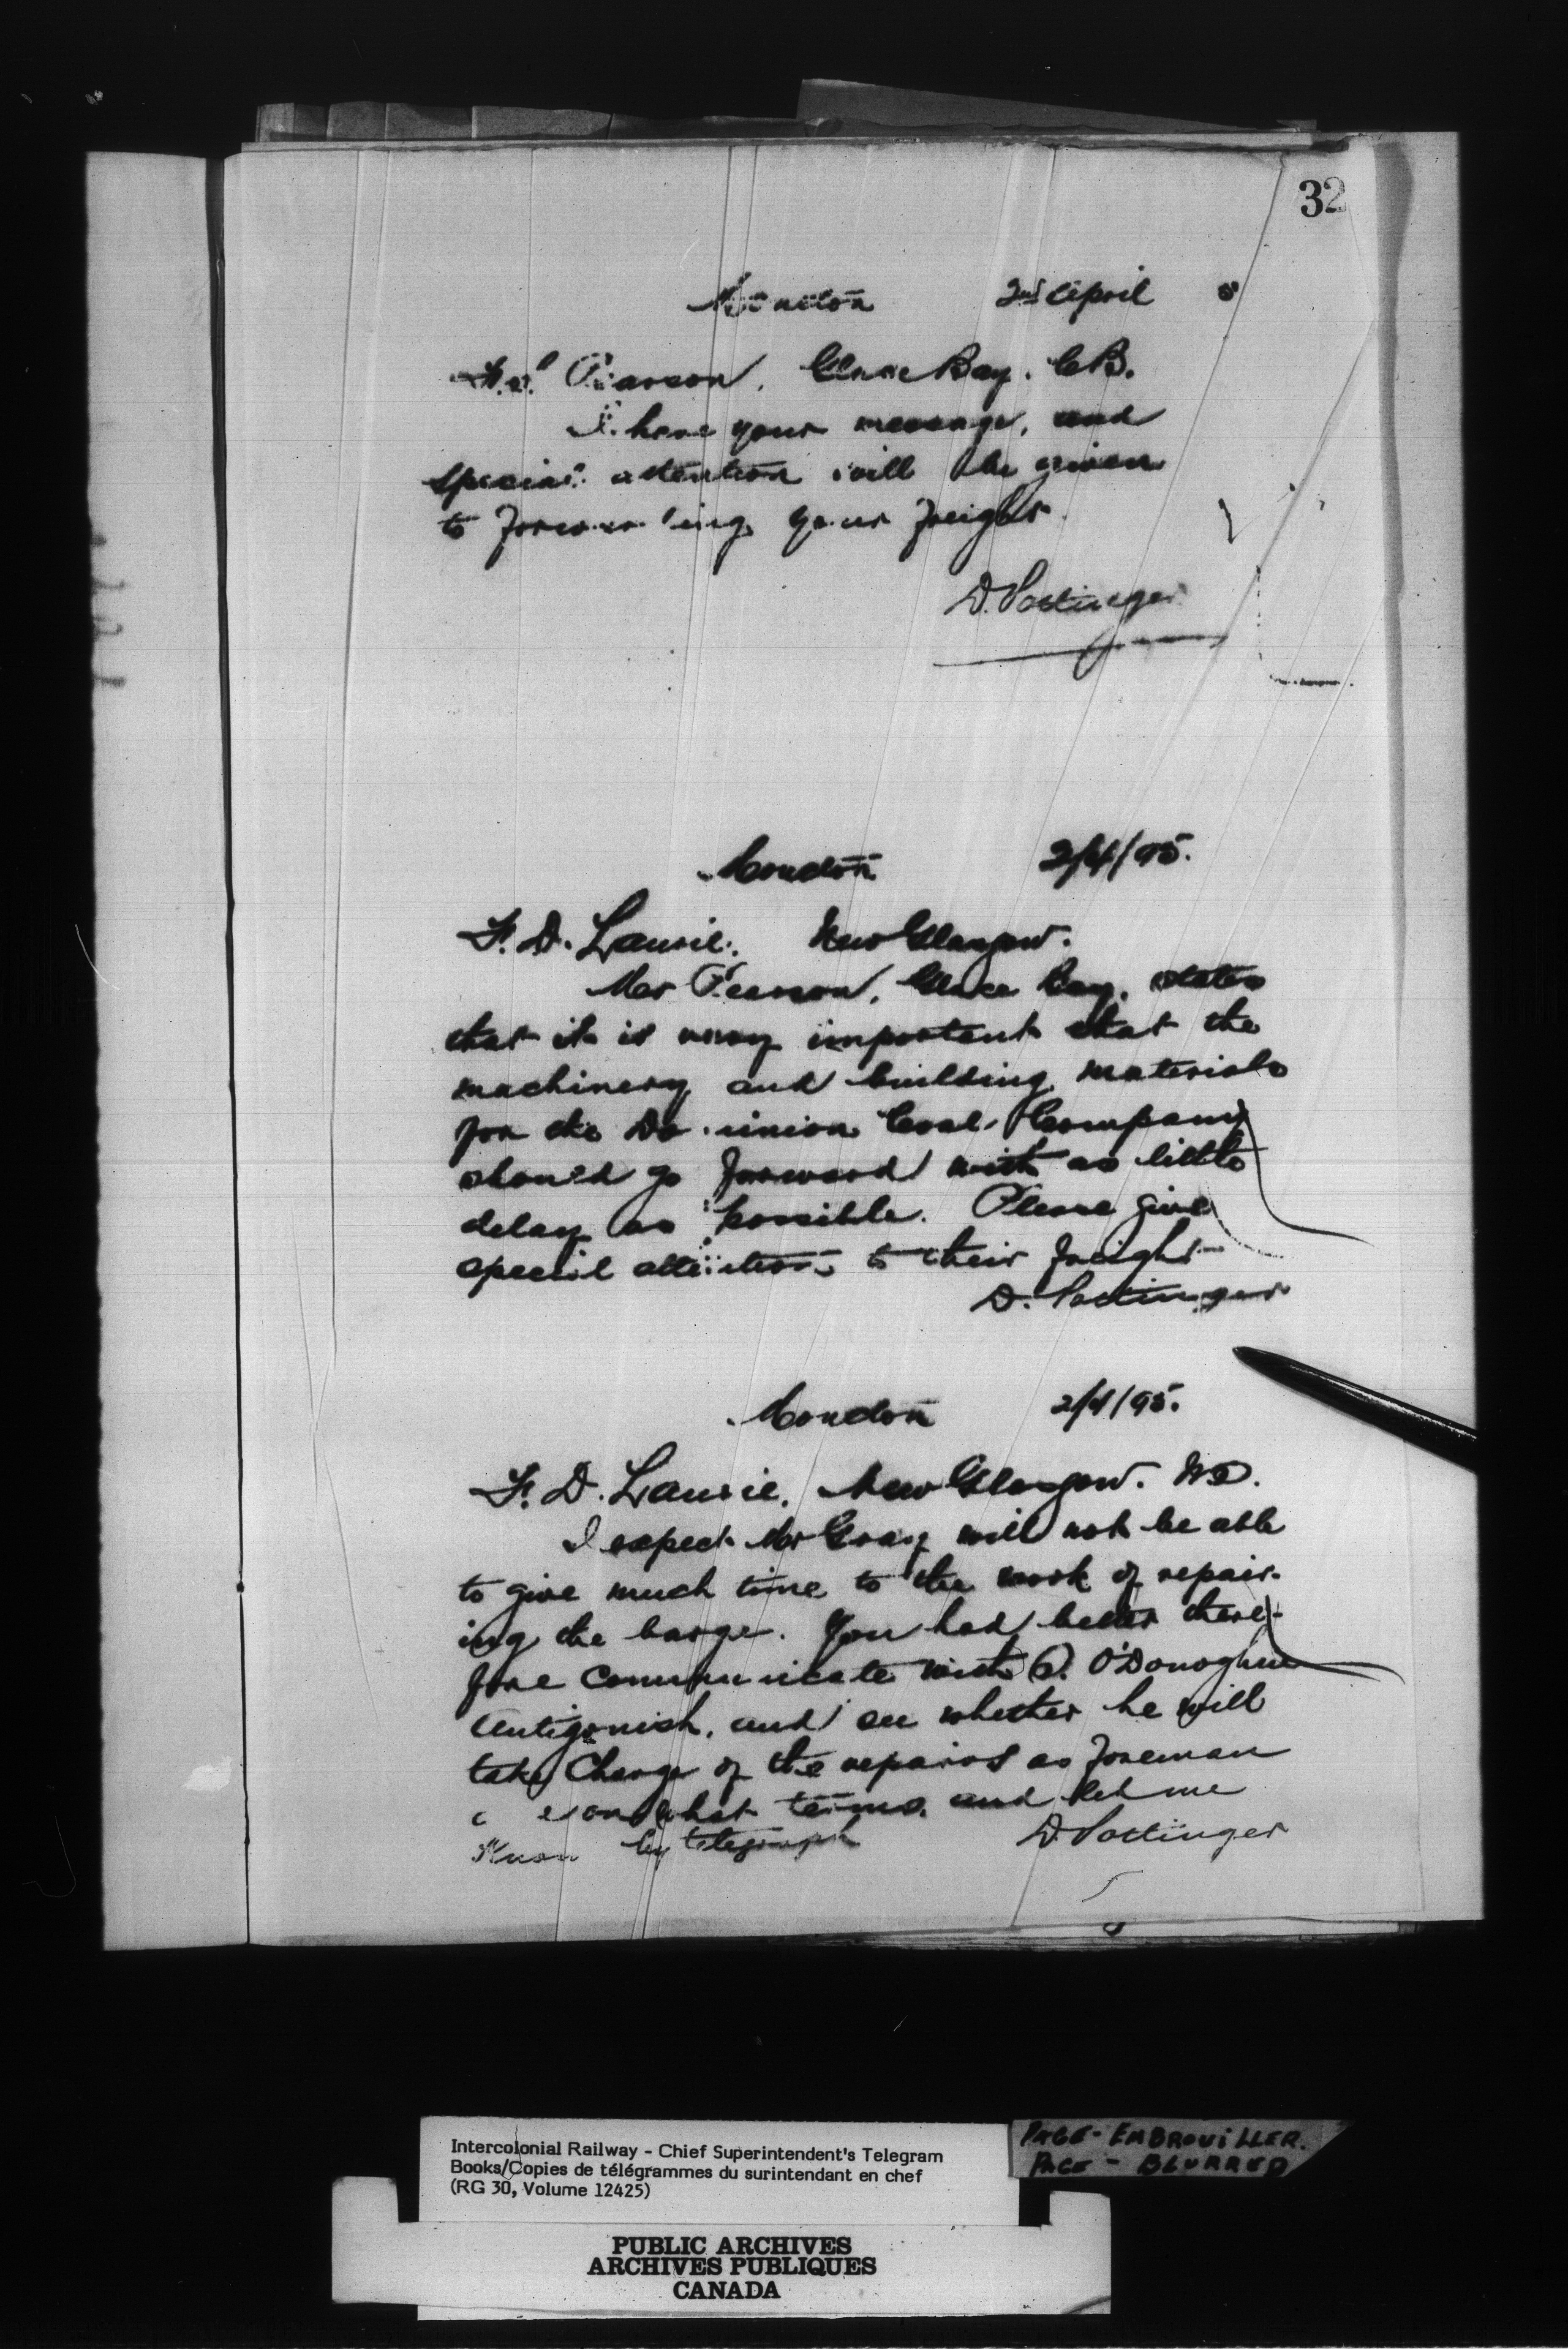 32
Moncton 2nd April
Pearson, Glace Bay. C.B.
I have your message, and
special attention will be given
to forwarding your freight.
D. Pottinger
Moncton 2/4/95.
F. D. Laurie. New Glasgow.
Mr Pearson, Glace Bay, states
that it is very important that the
machinery and building materials
for the Dominion Coal Company
should go forward with as little
delay as possible. Please give
special attention to their freight
D. Pottinger
Moncton 2/4/95.
F. D. Laurie, New Glasgow. N.S.
I expect Mr Gray will not be able
to give much time to the work of repair-
ing the barge. You had better there-
fore communicate with O'Donoghue
Antigonish, and see whether he will
take charge of the repairs as foreman
on what terms, and let me
know by telegraph D. Pottinger
Intercolonial Railway - Chief Superintendent's Telegram
Books/Copies de télégrammes du surintendant en chef
(RG 30, Volume 12425)
PAGE - EMBROUILLER.
PAGE - BLURRED
PUBLIC ARCHIVES
ARCHIVES PUBLIQUES
CANADA